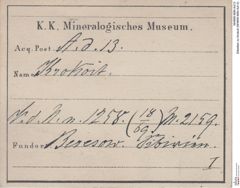 K. K. Mineralogisches Museum.
Acq. Post A. d. 13.
Name Krokoit.
V. d. N. n. 1258. (18/69) M. 2159.
Fundort Beresow. Sibirien.
I